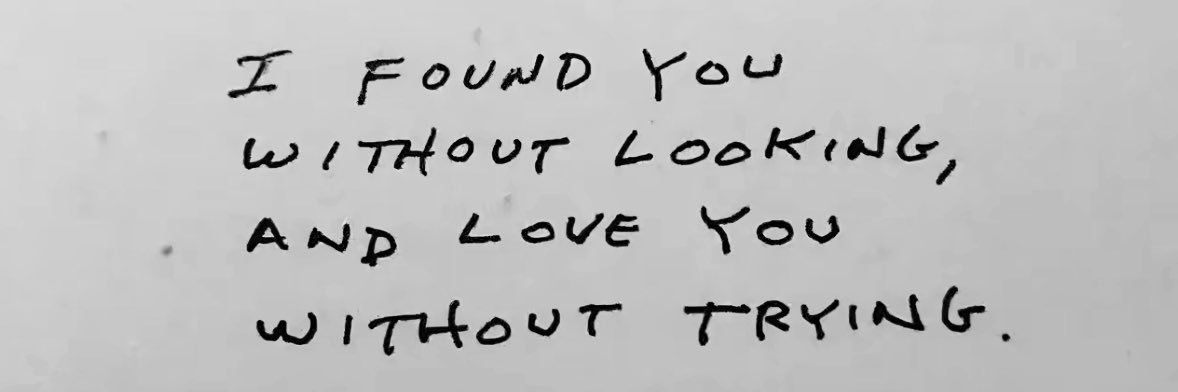 I FOUND YOU
WITHOUT LOOKING,
AND LOVE YOU
WITHOUT TRYING.